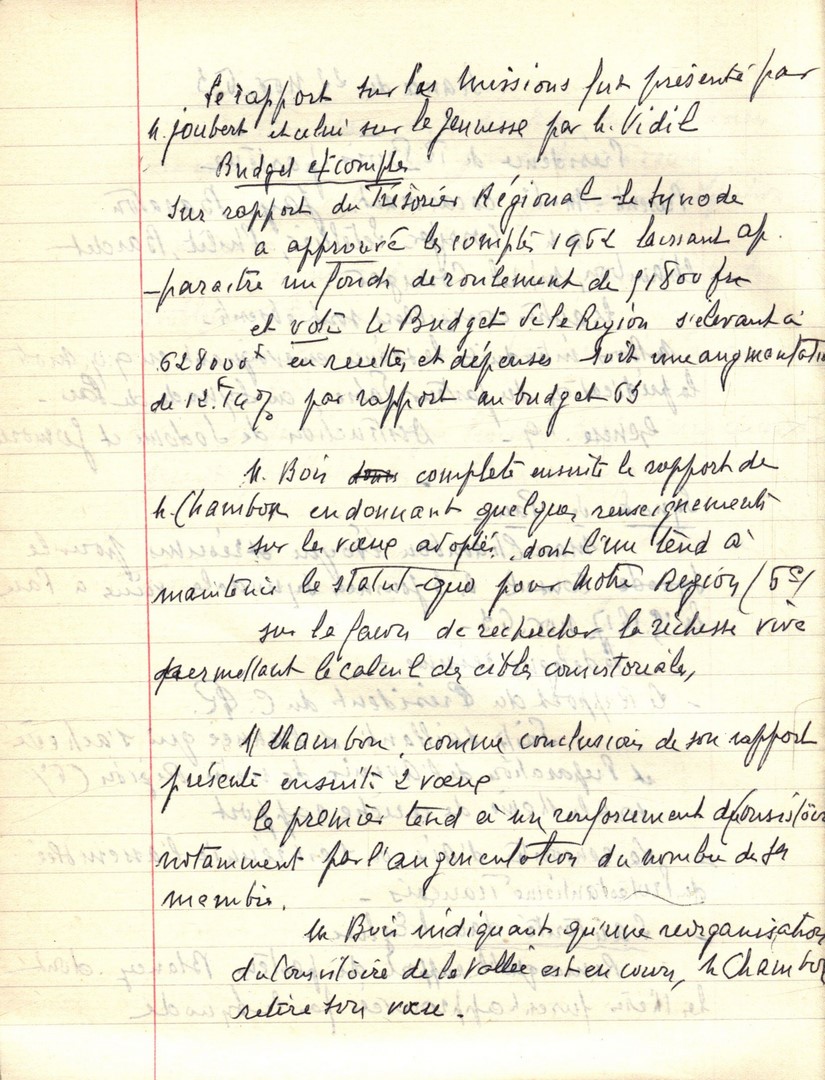 Le rapport sur les Missions fut présenté par
M. Joubert et celui sur la Jeunesse par M. Vidil
Budget et comptes
Sur rapport du Trésorier Régional le Synode
a approuvé les comptes 1962 laissant ap.
-paraitre un fonds de roulement de 91800 frs
et voté le Budget de la Région s'élevant à
628000F en recettes et dépenses soit une augmentation
de 12. % par rapport au budget 63
M. Bois complète ensuite le rapport de
M. Chambon en donnant quelques renseignements
sur les vœux adoptés, dont l'un tend à
maintenir le statut-quo pour notre Région (5e)
sur la façon de rechercher la richesse vive
permettant le calcul des cibles consistoriales,
M Chambon, comme conclusion de son rapport
présente ensuite 2 vœux
le premier tend à un renforcement du Consistoire
notamment par l'augmentation du nombre de ses
membres.
M. Bois indiquant qu'une réorganisation
du Consistoire de la Vallée est en cours, M Chambon
retire son vœu.